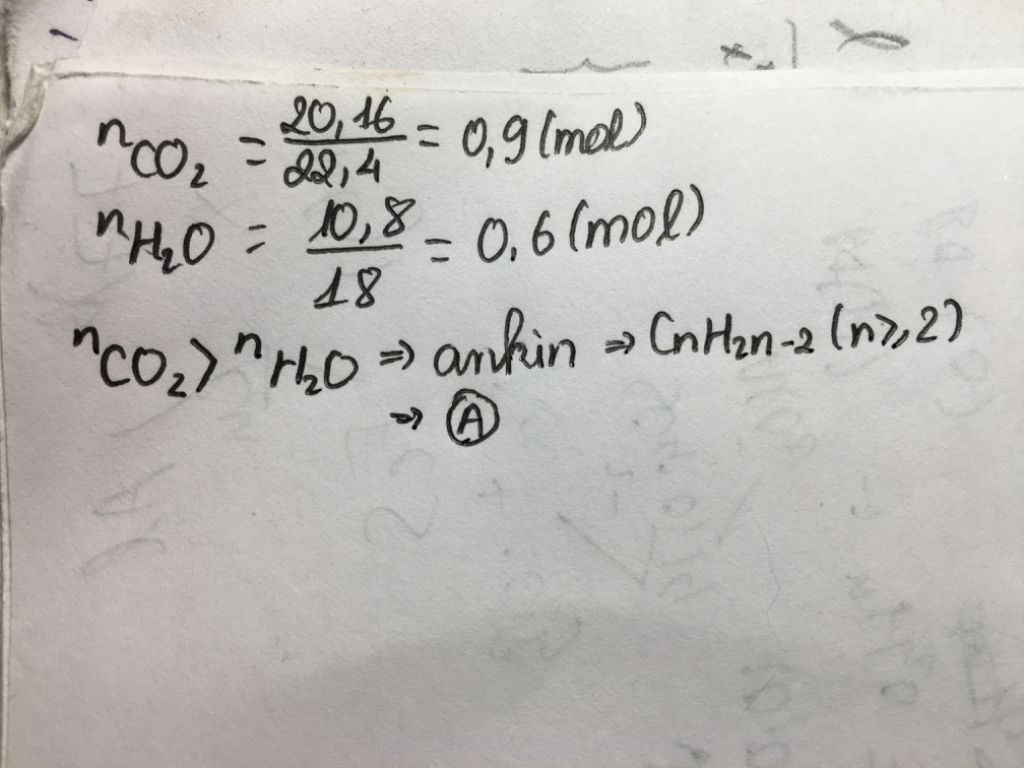 nCO₂ = 20,16/22,4 = 0,9 (mol)
nH₂O = 10,8/18 = 0,6 (mol)
nCO₂ > nH₂O ⇒ ankin ⇒ CnH2n-2 (n≥2)
⇒ Ⓐ